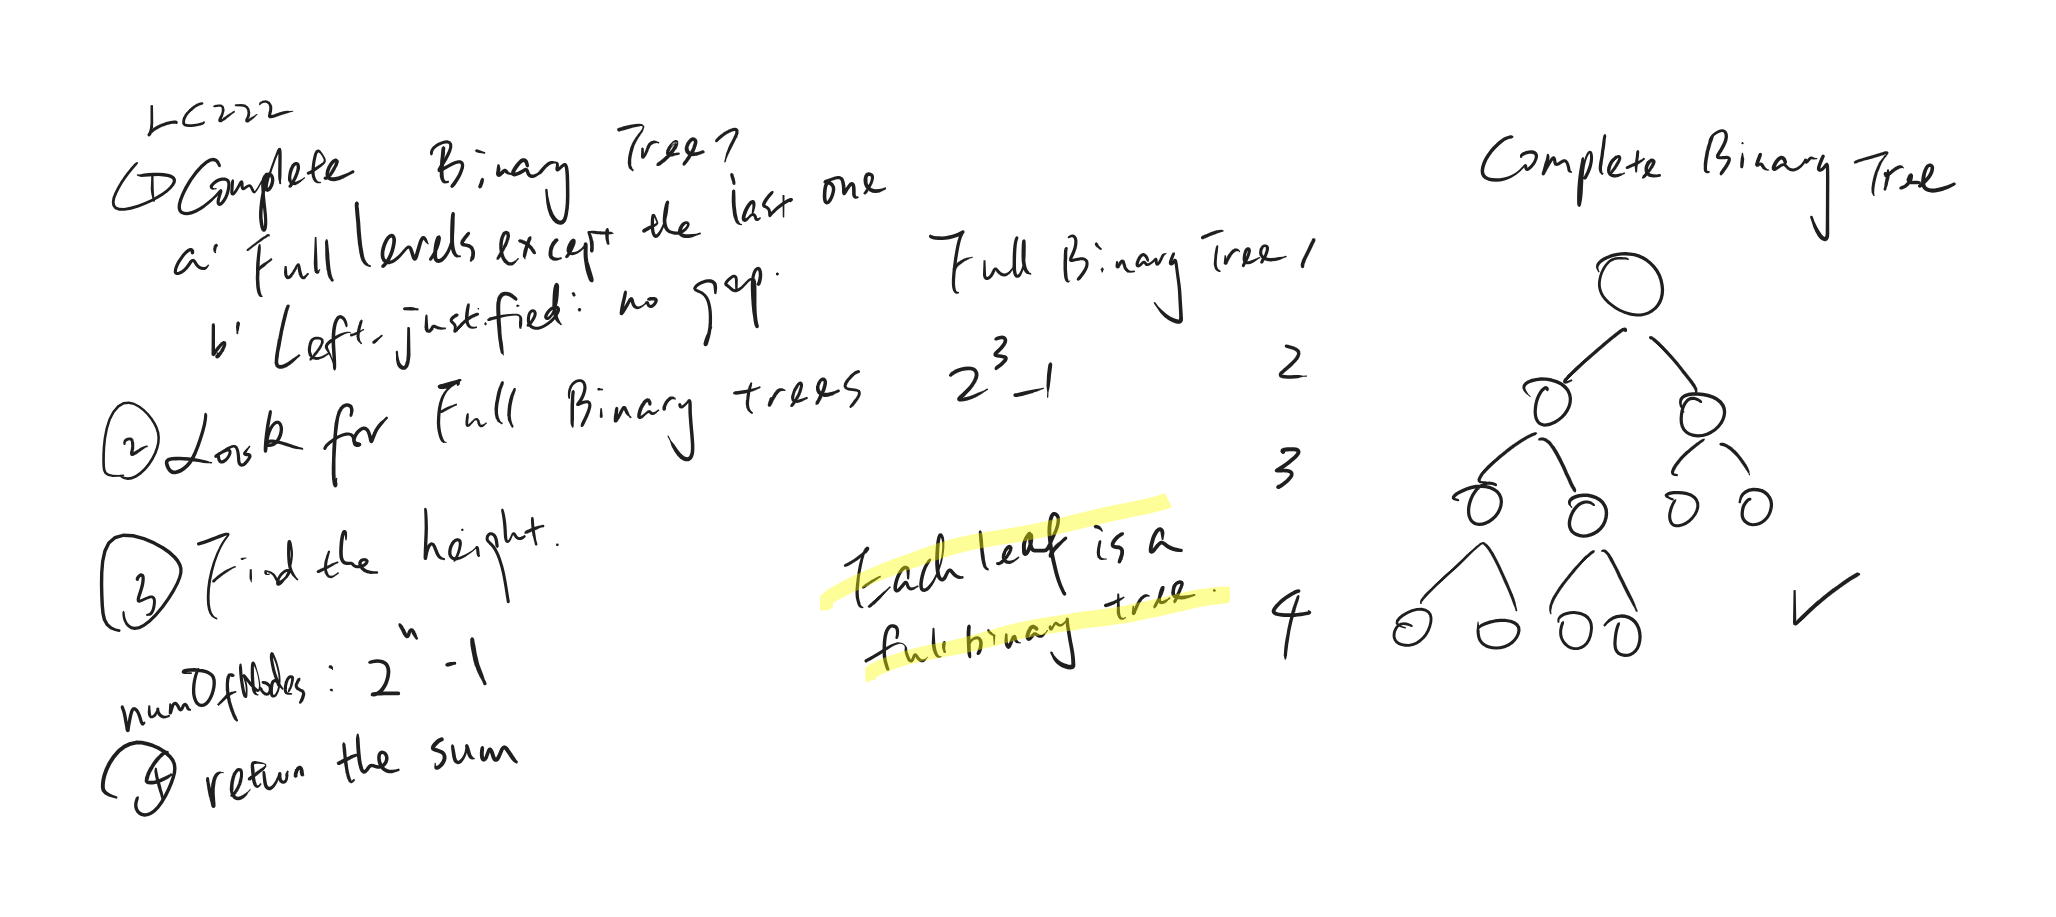 LC222
① Complete Binary Tree?
a. Full levels except the last one
b. Left-justified: no gap.
② Look for Full Binary trees
③ Find the height.
numOfNodes: 2^n - 1
④ return the sum
Full Binary Tree
2^3 - 1
Each leaf is a
full binary tree.
Complete Binary Tree
1
2
3
4
✓